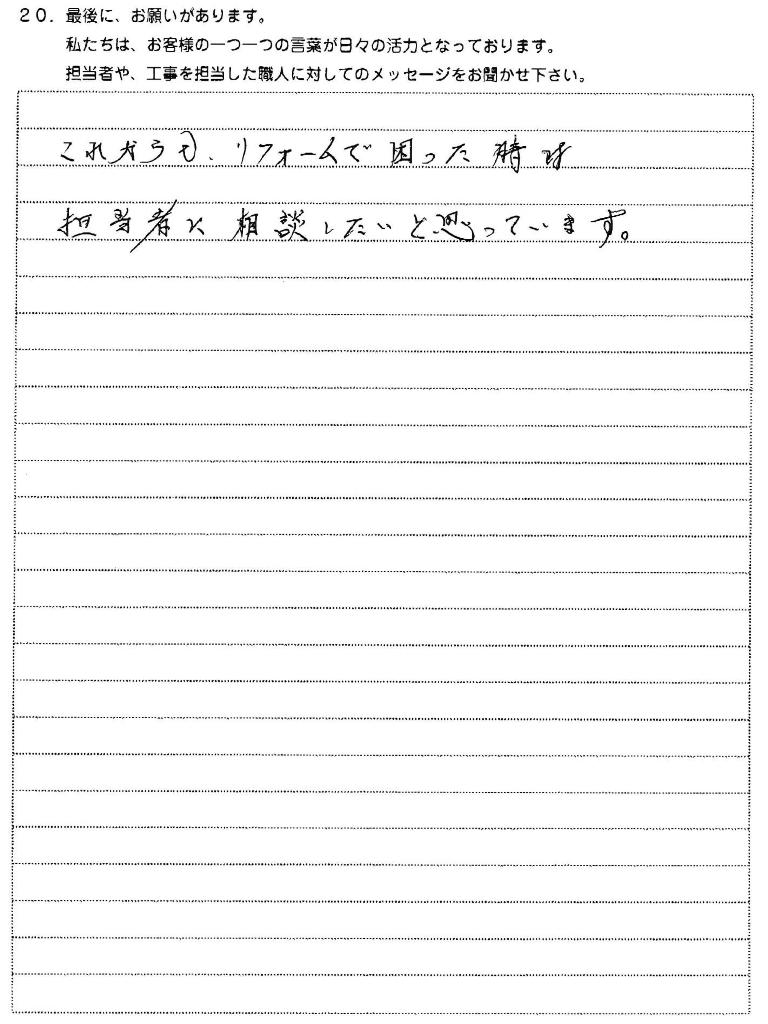 20. 最後に、お願いがあります。
私たちは、お客様の一つ一つの言葉が日々の活力となっております。
担当者や、工事を担当した職人に対してのメッセージをお聞かせ下さい。
これからも、リフォームで困った時は
担当者に相談したいと思っています。